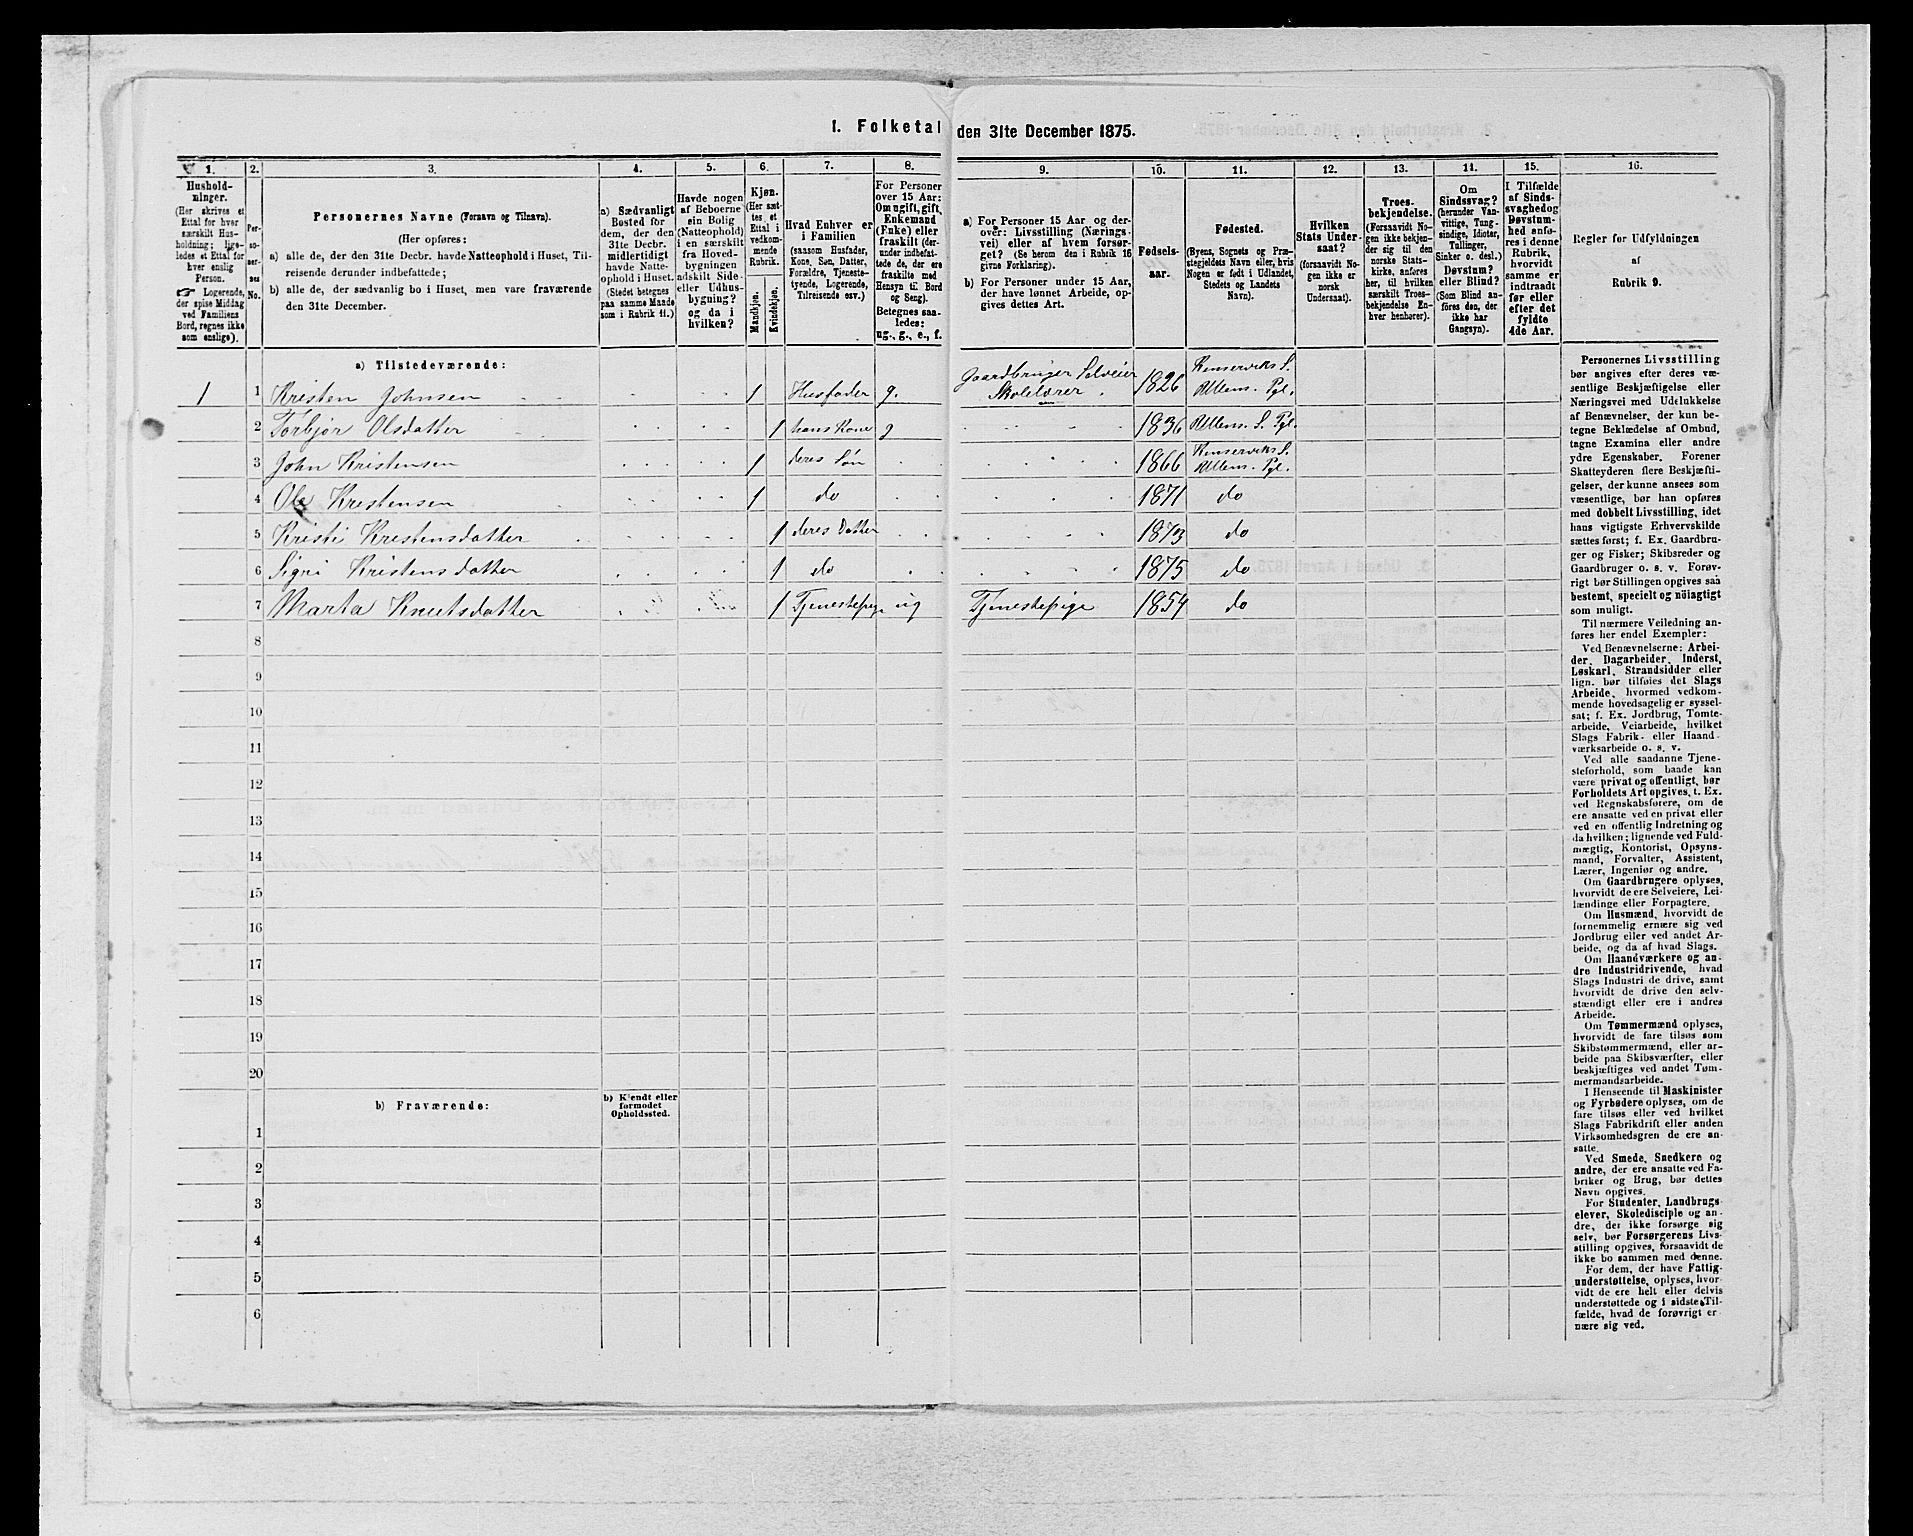 1. Folketal den 31te December 1875.
1.
Hushold-
ninger.
(Her skrives et
Ettal for hver
særskilt Hus-
holdning; lige-
ledes et Ettal for
hver enslig
Person.
☞ Logerende,
der spise Middag
ved Familiens
Bord, regnes ikke
som enslige).
2.
Per-
so-
ner-
nes
No.
3.
Personernes Navne (Fornavn og Tilnavn).
(Her opføres:
a) alle de, der den 31te Decbr. havde Natteophold i Huset, Til-
reisende derunder indbefattede;
b) alle de, der sædvanlig bo i Huset, men vare fraværende
den 31te December.
4.
a) Sædvanligt
Bosted for
dem, der den
31te Decbr.
midlertidigt
havde Natte-
ophold i Huset.
(Stedet betegnes
paa samme Maade
som i Rubrik 11.)
5.
Havde nogen
af Beboerne
sin Bolig
(Natteophold)
i en særskilt
fra Hoved-
bygningen
adskilt Side-
eller Udhus-
bygning?
og da i
hvilken?
6.
Kjøn.
(Her sæt-
tes et
Ettal i
vedkom-
mende
Rubrik.
Mandkjøn.
Kvindekjøn.
7.
Hvad Enhver er
i Familien
(saasom Husfader,
Kone, Søn, Datter,
Forældre, Tjeneste-
tyende, Logerende,
Tilreisende osv.)
8.
For Personer
over 15 Aar:
Om ugift, gift,
Enkemand
(Enke) eller
fraskilt (der-
under indbefat-
tede de, der ere
fraskilte med
Hensyn til Bord
og Seng).
Betegnes saa-
ledes:
ug., g., e., f.
9.
a) For Personer 15 Aar og der-
over: Livsstilling (Nærings-
vei) eller af hvem forsør-
get? (Se herom den i Rubrik 16
givne Forklaring).
b) For Personer under 15 Aar,
der have lønnet Arbeide, op-
gives dettes Art.
10.
Fødsels-
aar.
11.
Fødested.
(Byens, Sognets og Præ-
stegjeldets Navn eller, hvis
Nogen er født i Udlandet,
Stedets og Landets
Navn).
12.
Hvilken
Stats Under-
saat?
(forsaavidt No-
gen ikke er
norsk
Undersaat).
13.
Troes-
bekjendelse.
(Forsaavidt No-
gen ikke bekjen-
der sig til den
norske Stats-
kirke, anføres
her, til hvilken
særskilt Troes-
bekjendelse En-
hver henhører).
14.
Om
Sindssvag?
(herunder Van-
vittige, Tung-
sindige, Idioter,
Tullinger,
Sinker o. desl.)
Døvstum?
eller Blind?
(Som Blind an-
føres den, der
ikke har
Gangsyn).
15.
I Tilfælde
af Sinds-
svaghed og
Døvstum-
hed anfø-
res i denne
Rubrik,
hvorvidt
samme er
indtraadt
før eller
efter det
fyldte
4de Aar.
16.
Regler for Udfyldningen
af
Rubrik 9.
a) Tilstedeværende:
1 1 Kristen Johnsen 1 Husfader g. Gaardbruger Selveier Skolelærer 1826 Kinserviks S. Ullens. Pgl.
2 Torbjør Olsdatter 1 hans Kone g 1836 Ullens. S. Pgl.
3 John Kristensen 1 deres Søn 1866 Kinserviks S. Ullens. Pgl.
4 Ole Kristensen 1 do 1871 do
5 Kristi Kristensdatter 1 deres Datter 1873 do
6 Sigri Kristensdatter 1 do 1875 do
7 Marta Knutsdatter 1 Tjenestepige ug Tjenestepige 1854 do
8
9
10
11
12
13
14
15
16
17
18
19
20
b) Fraværende:
b) Kjendt eller
formodet
Opholdssted.
1
2
3
4
5
6
Personernes Livsstilling
bør angives efter deres væ-
sentlige Beskjæftigelse eller
Næringsvei med Udelukkelse
af Benævnelser, der kun be-
tegne Beklædelse af Ombud,
tagne Examina eller andre
ydre Egenskaber. Forener
Skatteyderen flere Beskjæfti-
gelser, der kunne ansees som
væsentlige, bør han opføres
med dobbelt Livsstilling, idet
hans vigtigste Erhvervskilde
sættes først; f. Ex. Gaardbru-
ger og Fisker; Skibsreder og
Gaardbruger o. s. v. Forøv-
rigt bør Stillingen opgives saa
bestemt, specielt og nöiagtigt
som muligt.
Til nærmere Veiledning an-
føres her endel Exempler:
Ved Benævnelserne: Arbei-
der, Dagarbeider, Inderst,
Løskarl, Strandsidder eller
lign. bør tilføies det Slags
Arbeide, hvormed vedkom-
mende hovedsagelig er syssel-
sat; f. Ex. Jordbrug, Tomte-
arbeide, Veiarbeide, hvilket
Slags Fabrik- eller Haand-
værksarbeide o. s. v.
Ved alle saadanne Tjene-
steforhold, som baade kan
være privat og offentligt, bør
Forholdets Art opgives, t. Ex.
ved Regnskabsførere, om de
ere ansatte ved en privat eller
ved en offentlig Indretning og
da hvilken; lignende ved Fuld-
mægtig, Kontorist, Opsyns-
mand, Forvalter, Assistent,
Lærer, Ingeniør og andre.
Om Gaardbrugere oplyses,
hvorvidt de ere Selveiere, Lei-
lændinge eller Forpagtere.
Om Husmænd, hvorvidt de
fornemmelig ernære sig ved
Jordbrug eller ved andet Ar-
beide, og da af hvad Slags.
Om Haandværkere og an-
dre Industridrivende, hvad
Slags Industri de drive, samt
hvorvidt de drive den selv-
stændigt eller ere i andres
Arbeide.
Om Tømmermænd oplyses,
hvorvidt de fare tilsøs som
Skibstømmermænd, eller ar-
beide paa Skibsværfter, eller
beskjæftiges ved andet Tøm-
mermandsarbeide.
I Henseende til Maskinister
og Fyrbødere oplyses, om de
fare tilsøs eller ved hvilket
Slags Fabrikdrift eller anden
Virksomhedsgren de ere an-
satte.
Ved Smede, Snedkere og
andre, der ere ansatte ved Fa-
briker og Brug, bør dettes
Navn opgives.
For Studenter, Landbrugs-
elever, Skoledisciple og an-
dre, der ikke forsørge sig
selv, bør Forsørgerens Livs-
stilling opgives, forsaavidt de
ikke bo sammen med denne.
For dem, der have Fattig-
understøttelse, oplyses, hvor-
vidt de ere helt eller delvis
understøttede og i sidste Til-
fælde, hvad de forøvrigt er-
nære sig ved.